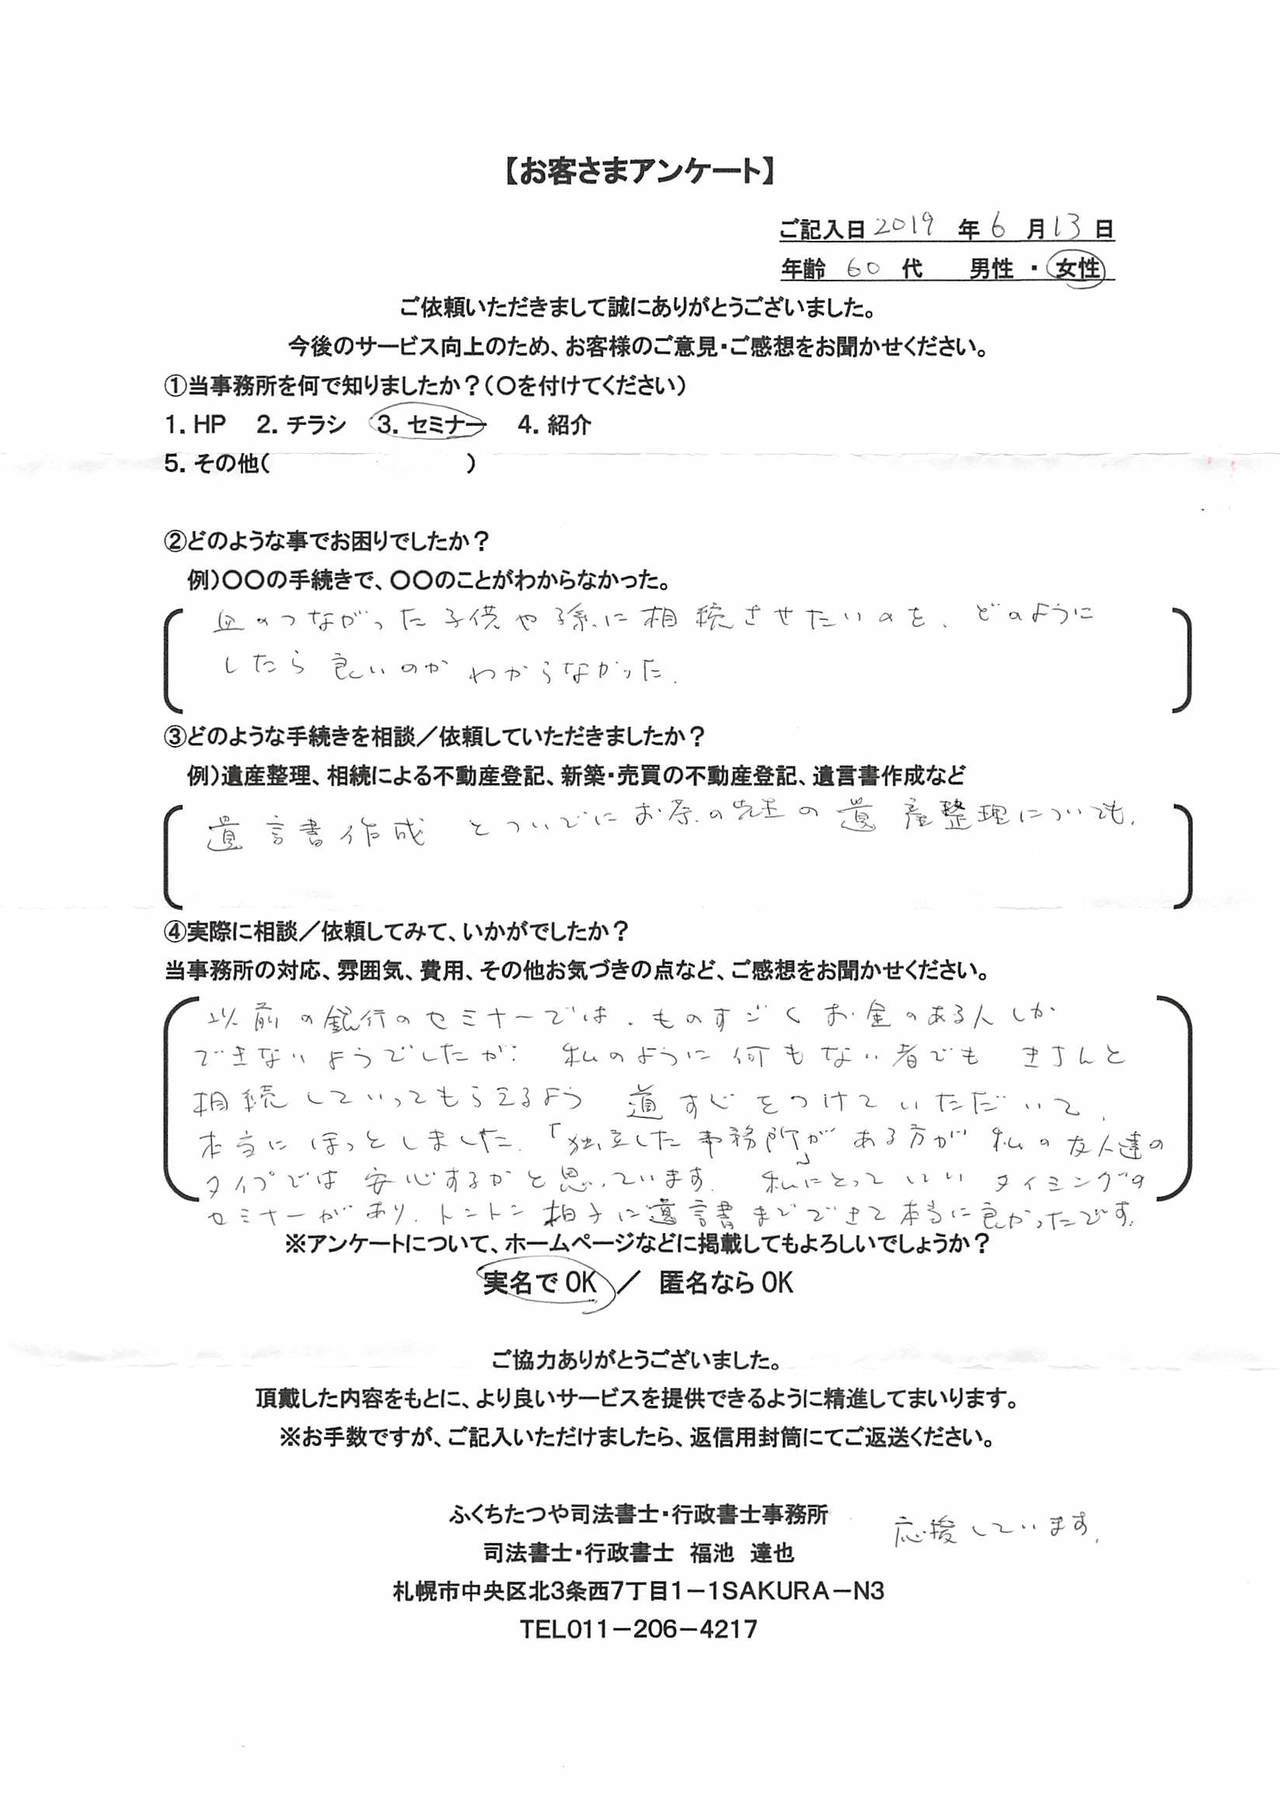 【お客さまアンケート】
ご記入日 2019 年 6 月 13 日
年齢 60 代 男性 ・ 女性
ご依頼いただきまして誠にありがとうございました。
今後のサービス向上のため、お客様のご意見・ご感想をお聞かせください。
①当事務所を何で知りましたか？(〇を付けてください)
1. HP 2. チラシ 3. セミナー 4. 紹介
5. その他( )
②どのような事でお困りでしたか？
例)〇〇の手続きで、〇〇のことがわからなかった。
血のつながった子供や孫に相続させたいのを、どのように
したら良いのかわからなかった.
③どのような手続きを相談／依頼していただきましたか？
例)遺産整理、相続による不動産登記、新築・売買の不動産登記、遺言書作成など
遺言書作成 とついでにお茶の先生の遺産整理についても.
④実際に相談／依頼してみて、いかがでしたか？
当事務所の対応、雰囲気、費用、その他お気づきの点など、ご感想をお聞かせください。
以前の銀行のセミナーでは、ものすごくお金のある人しか
できないようでしたが、私のように何もない者でも きちんと
相続していってもらえるよう 道すじをつけていただいて、
本当にほっとしました.「独立した事務所」がある方が 私の友人達の
タイプでは 安心するかと思っています. 私にとっていいタイミングの
セミナーがあり、トントン拍子に遺言書までできて本当に良かったです.
※アンケートについて、ホームページなどに掲載してもよろしいでしょうか？
実名でOK ／ 匿名ならOK
ご協力ありがとうございました。
頂戴した内容をもとに、より良いサービスを提供できるように精進してまいります。
※お手数ですが、ご記入いただけましたら、返信用封筒にてご返送ください。
ふくちたつや司法書士・行政書士事務所
応援しています.
司法書士・行政書士 福池 達也
札幌市中央区北3条西7丁目1－1SAKURA－N3
TEL011－206－4217